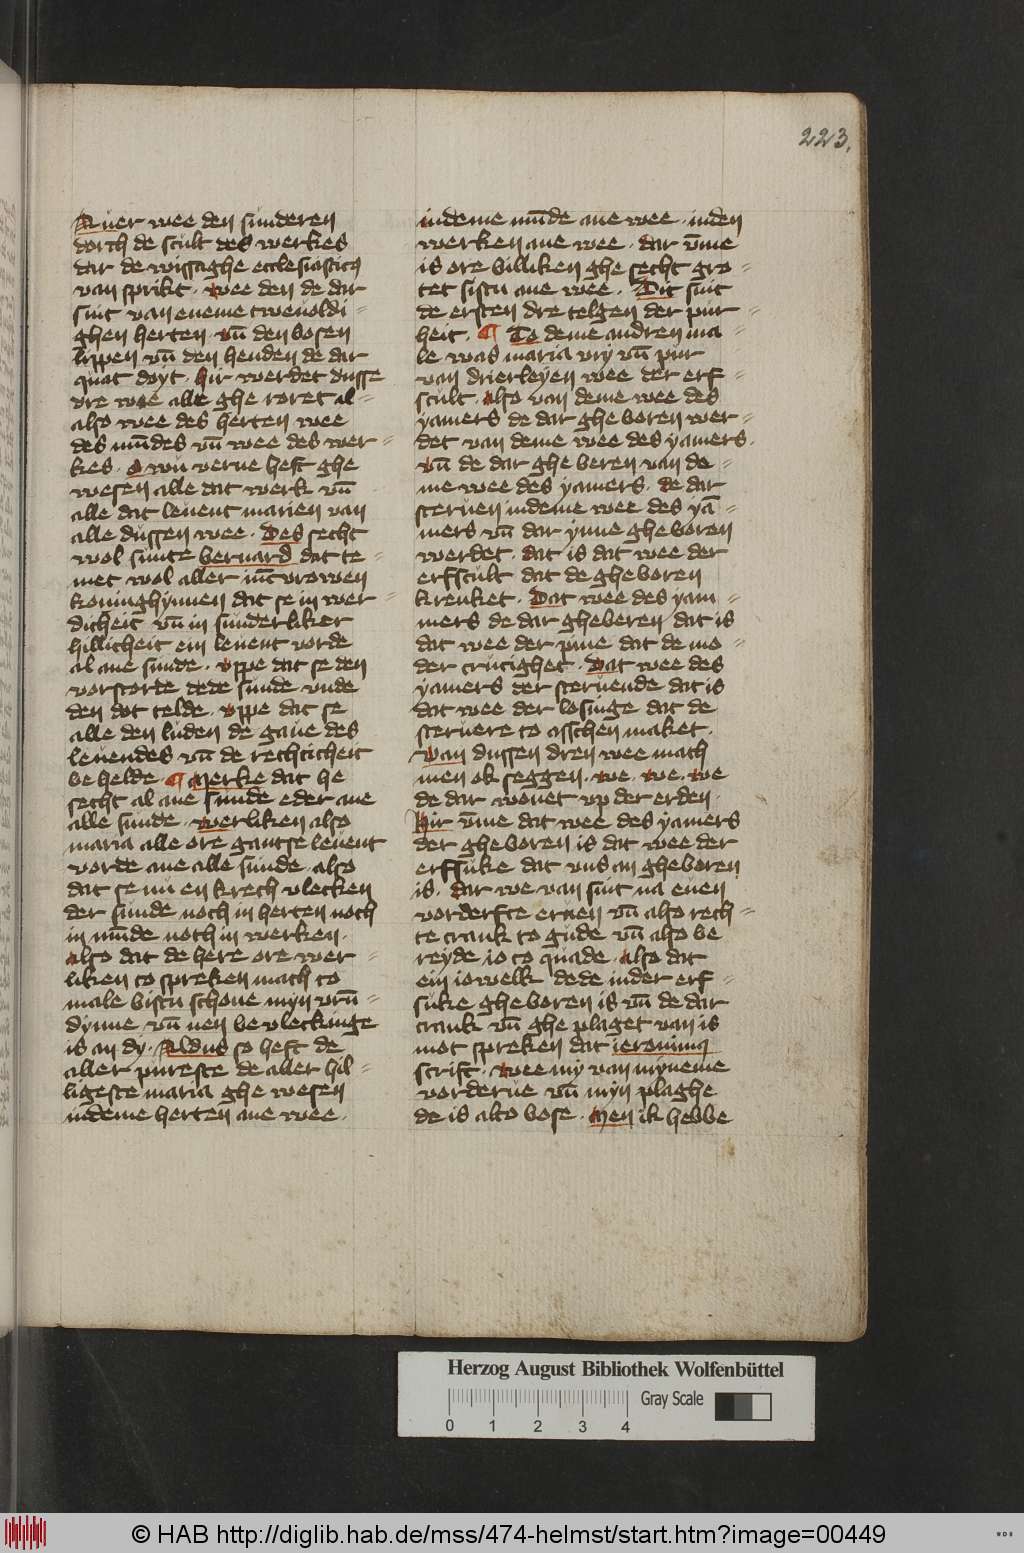 223.
Auer wee den sunderen
dorch de scult des werkes
dar de wissaghe ecclesiasticus
van sprikt. wee den de dar
sint van eneme twenoldi=
ghen herten. vn̄ den bosen
lippen vn̄ den henden de dar
quat doyt. hir werdet dusse
dre wee alle ghe roret al=
also wee des herten wee
des mūdes vn̄ wee des wer=
kes. O wu verne heft ghe
wesen alle dat werk vn̄
alle dat leuent marien van
alle dussen wee. Des secht
wol sunte bernard dat te=
met wol aller iūcvrowen
koninghynnen dat se in wer=
dicheit vn̄ in sunderliker
hillicheit ein leuent vorde
al ane sunde. vppe dat se den
vorstorde dede sunde vnde
den dot telde. vppe dat se
alle den luden de gaue des
leuendes vn̄ de rechticheit
be helde ¶ Merke dat he
secht al ane sunde eder ane
alle sunde. werliken also
maria alle ore gantse leuent
vorde ane alle sunde. also
dat se nu en krech vlecken
der sunde noch in herten noch
in mūde noch in werken.
also dat de here ore wer=
liken to spreken mach to
male bistu schone myn vrū=
dynne vn̄ nen be vleckinge
is an dy. Aldus so heft de
aller pureste de aller hil=
ligeste maria ghe wesen
indeme herten ane wee.
indeme mūde ane wee. inden
werken ane wee. dar v̄me
is ore billiken ghe secht gro=
tet sistu ane wee. Dit sint
de ersten dre telgen der pur=
heit. ¶ To deme andren ma=
le was maria vry vn̄ pur
van drierleyen wee der erf=
scult. also van deme wee des
yamers de dar ghe boren wer=
det van deme wee des yamers.
vn̄ de dar ghe beren van de=
me wee des yamers. de dar
steruen indeme wee des yā=
mers vn̄ dar ynne ghe boren
werdet. dat is dat wee der
erfscult dat de ghe boren
krenket. Dat wee des yam=
mers de dar gheberen dat is
dat wee der pine dat de mo=
der crucighet. Dat wee des
yamers der steruende dat is
dat wee der losinge dat de
steruere to asschen maket.
Van dussen dren wee mach
men ok seggen. we. we. we
de dar wonet vp der erden.
Hir v̄me dat wee des yamers
der ghe boren is dat wee der
erfsuke dat vns an gheboren
is. dar we van sint na euen
vorderfte eruen vn̄ also rech=
te crank to gude vn̄ also be
reyde io to quade. also dat
ein iowelk dede inder erf=
suke ghe boren is vn̄ de dar
crank vn̄ ghe plaget van is
mot spreken dat ieronimus
scrift. Wee my van myneme
vorderue vn̄ myn plaghe
de is alto bose. Men ik hebbe
Herzog August Bibliothek Wolfenbüttel
Gray Scale
0 1 2 3 4
© HAB http://diglib.hab.de/mss/474-helmst/start.htm?image=00449